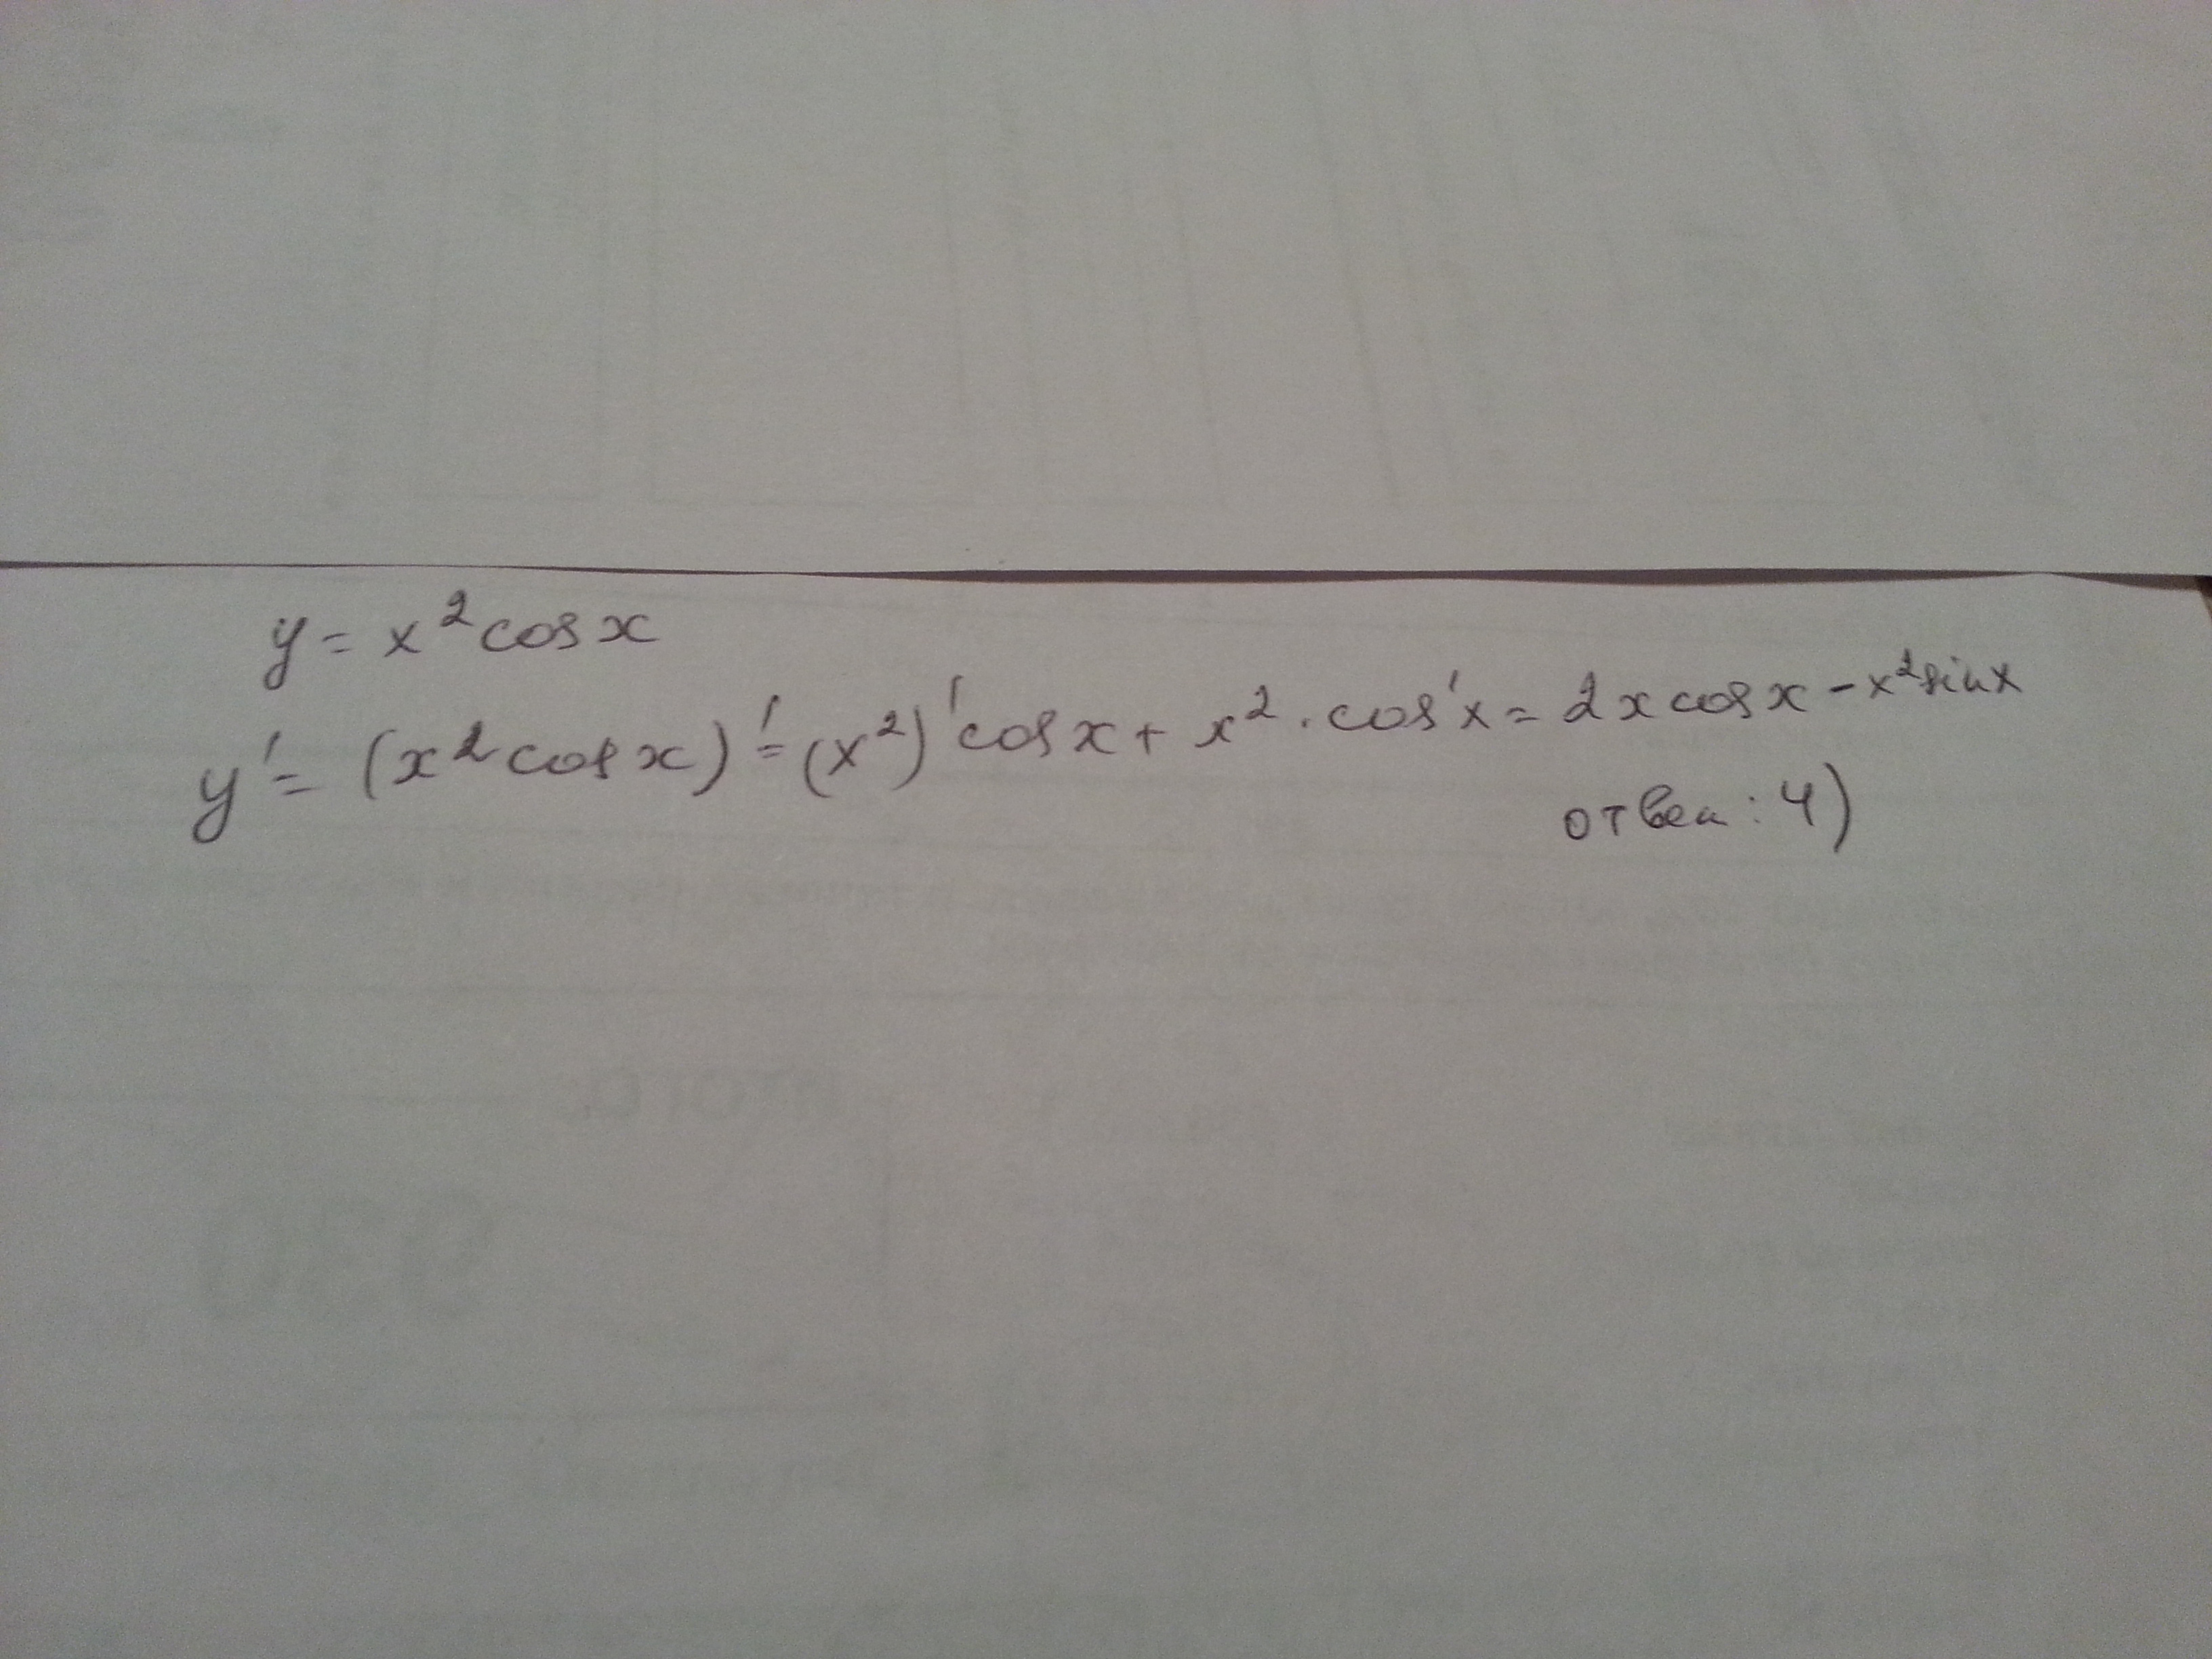 y = x² cos x
y' = (x² cos x)' = (x²)' cos x + x² · cos'x = 2x cos x - x² sin x
ответ: 4)